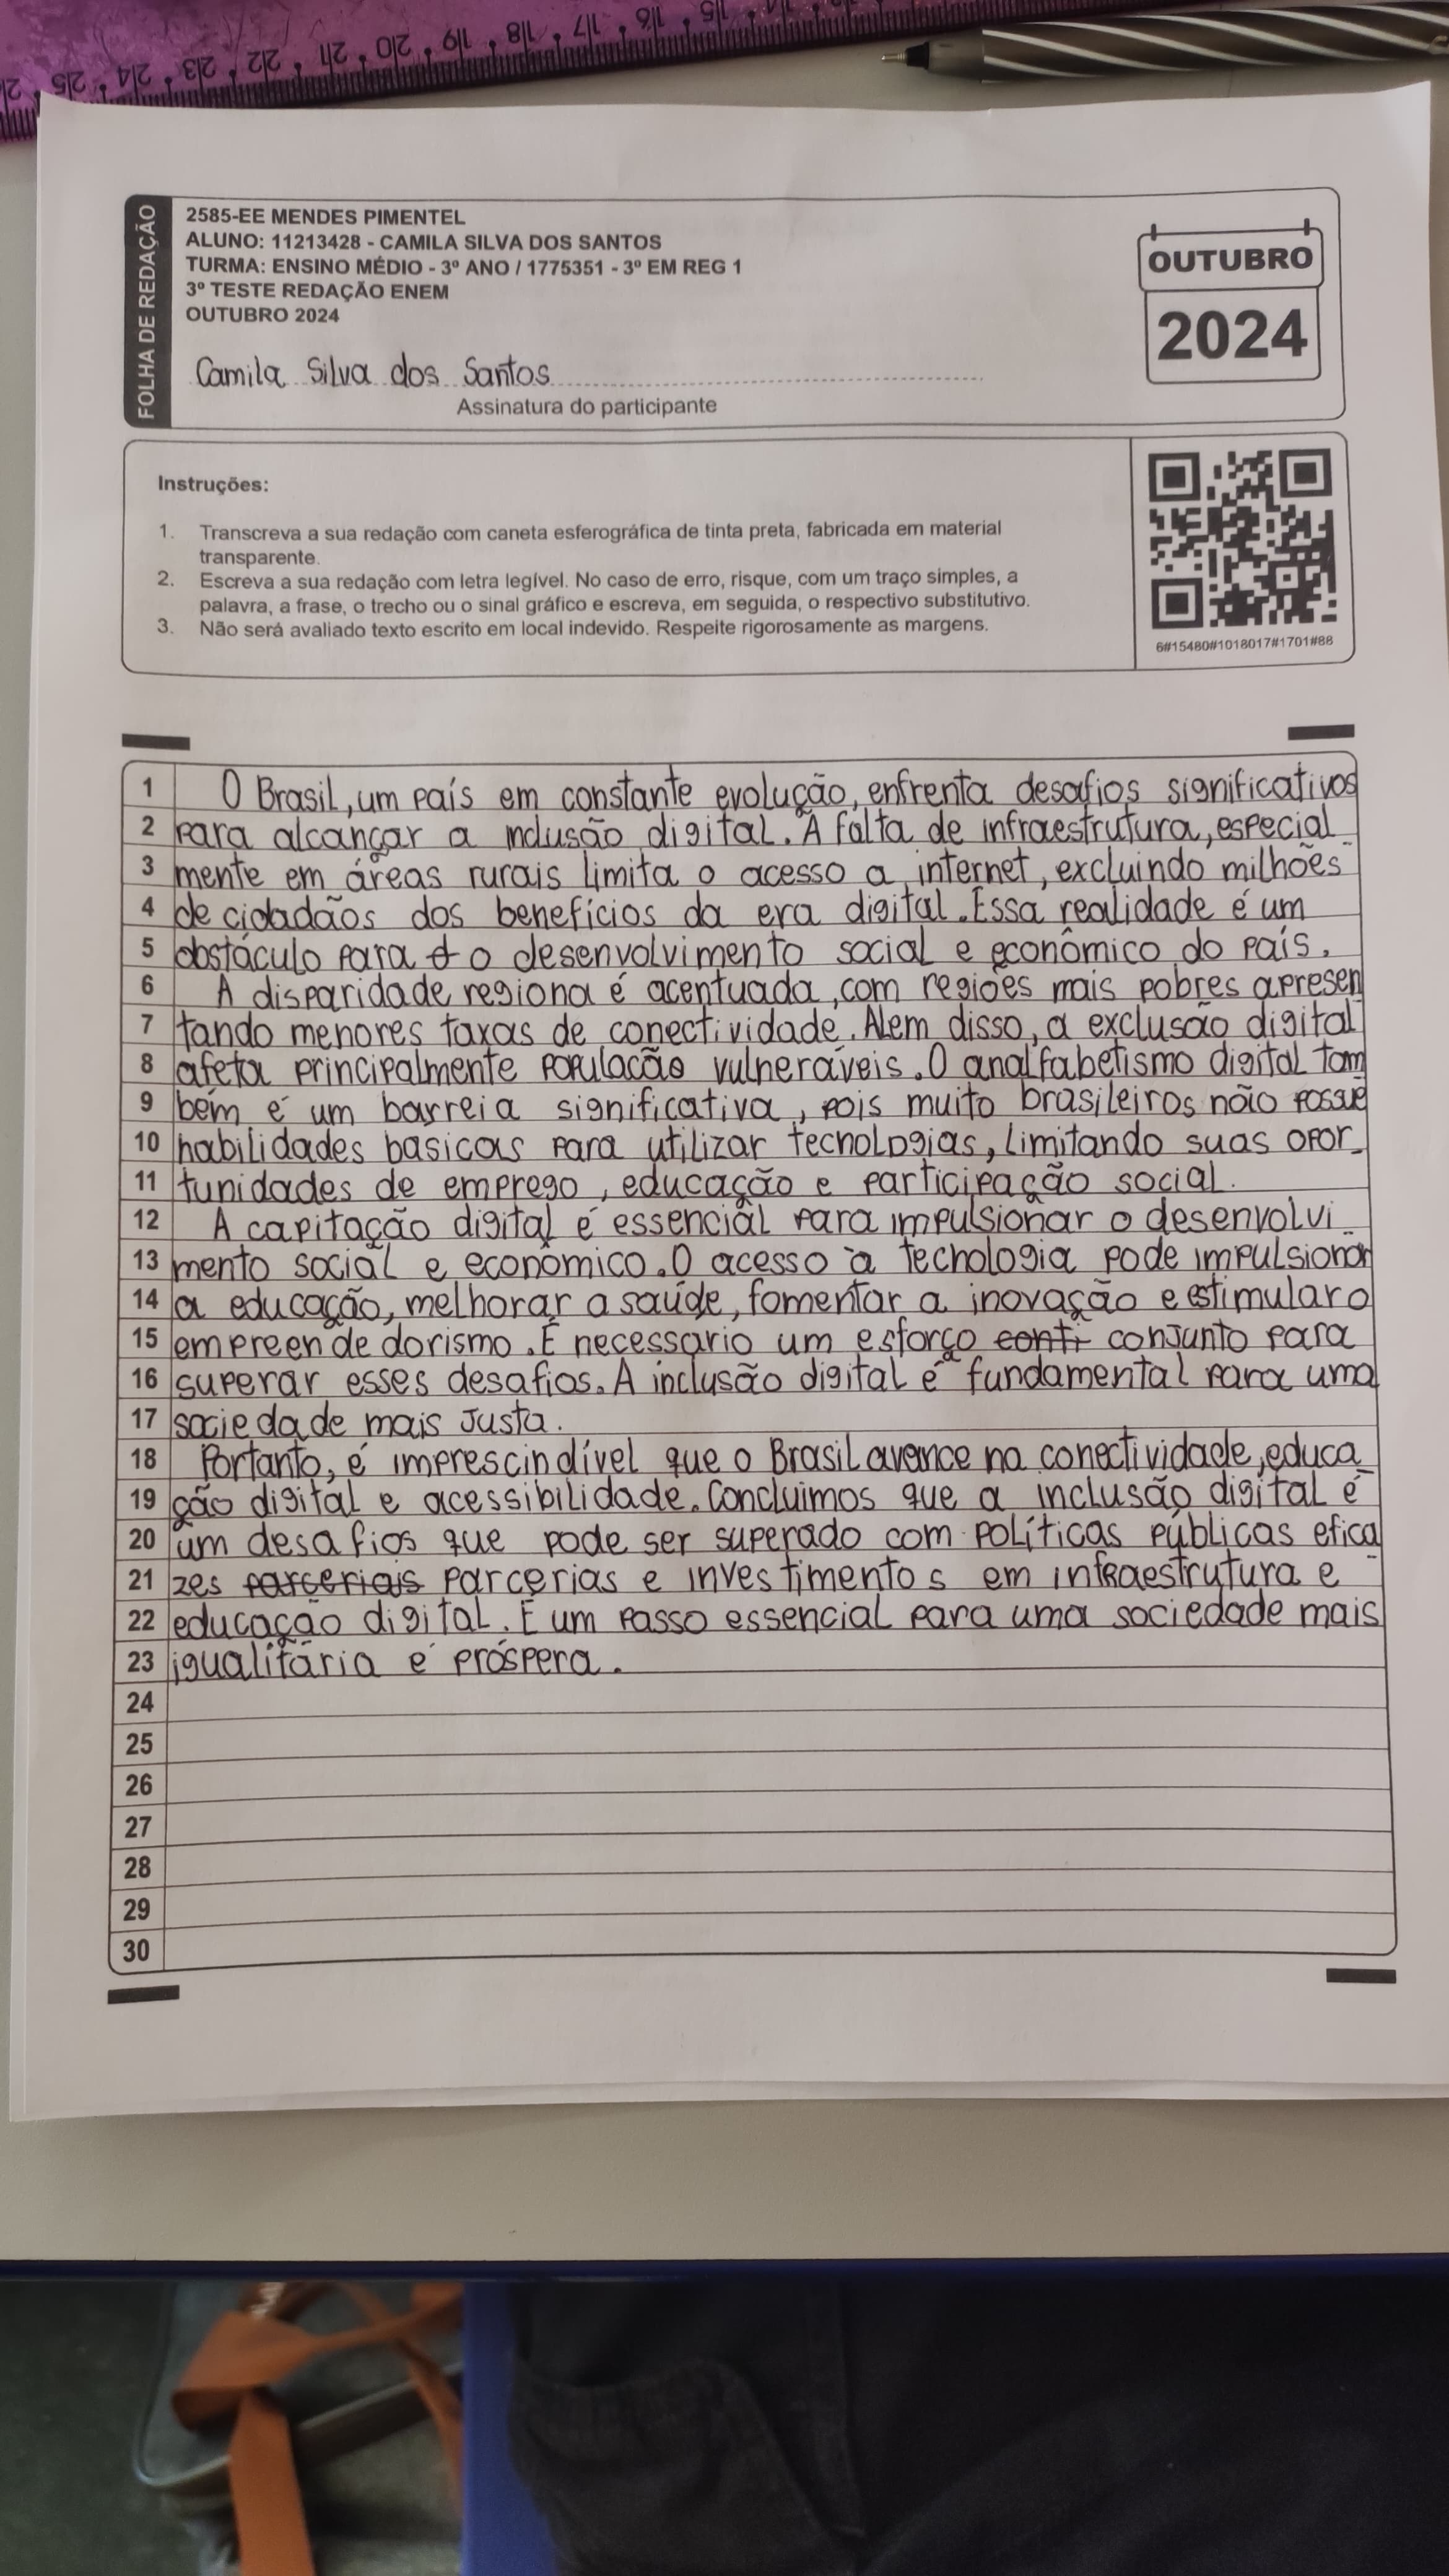 25 24 23 22 21 20 19 18 17 16 15
FOLHA DE REDAÇÃO
2585-EE MENDES PIMENTEL
ALUNO: 11213428 - CAMILA SILVA DOS SANTOS
TURMA: ENSINO MÉDIO - 3º ANO / 1775351 - 3º EM REG 1
3º TESTE REDAÇÃO ENEM
OUTUBRO 2024
Camila Silva dos Santos
Assinatura do participante
OUTUBRO
2024
Instruções:
1. Transcreva a sua redação com caneta esferográfica de tinta preta, fabricada em material
transparente.
2. Escreva a sua redação com letra legível. No caso de erro, risque, com um traço simples, a
palavra, a frase, o trecho ou o sinal gráfico e escreva, em seguida, o respectivo substitutivo.
3. Não será avaliado texto escrito em local indevido. Respeite rigorosamente as margens.
6#15480#1018017#1701#88
1 O Brasil, um país em constante evolução, enfrenta desafios significativos
2 para alcançar a inclusão digital. A falta de infraestrutura, especial
3 mente em áreas rurais limita o acesso a internet, excluindo milhões
4 de cidadãos dos benefícios da era digital. Essa realidade é um
5 obstáculo para o o desenvolvimento social e econômico do país.
6 A disparidade regiona é acentuada, com regiões mais pobres apresen
7 tando menores taxas de conectividade. Alem disso, a exclusão digital
8 afeta principalmente população vulneráveis. O analfabetismo digital tam
9 bém é um barreia significativa, pois muito brasileiros não possue
10 habilidades basicas para utilizar tecnologias, limitando suas opor_
11 tunidades de emprego, educação e participação social.
12 A capitação digital é essencial para impulsionar o desenvolvi_
13 mento social e econômico. O acesso à techologia pode impulsionar
14 a educação, melhorar a saúde, fomentar a inovação e estimular o
15 empreendedorismo. É necessario um esforço conti conjunto para
16 superar esses desafios. A inclusão digital é fundamental para uma
17 sociedade mais justa.
18 Portanto, é imprescindível que o Brasil avance na conectividade, educa_
19 ção digital e acessibilidade. Concluimos que a inclusão digital é
20 um desafios que pode ser superado com políticas públicas efica
21 zes parcerias parcerias e investimentos em infraestrutura e
22 educação digital. É um passo essencial para uma sociedade mais
23 igualitária e próspera.
24
25
26
27
28
29
30